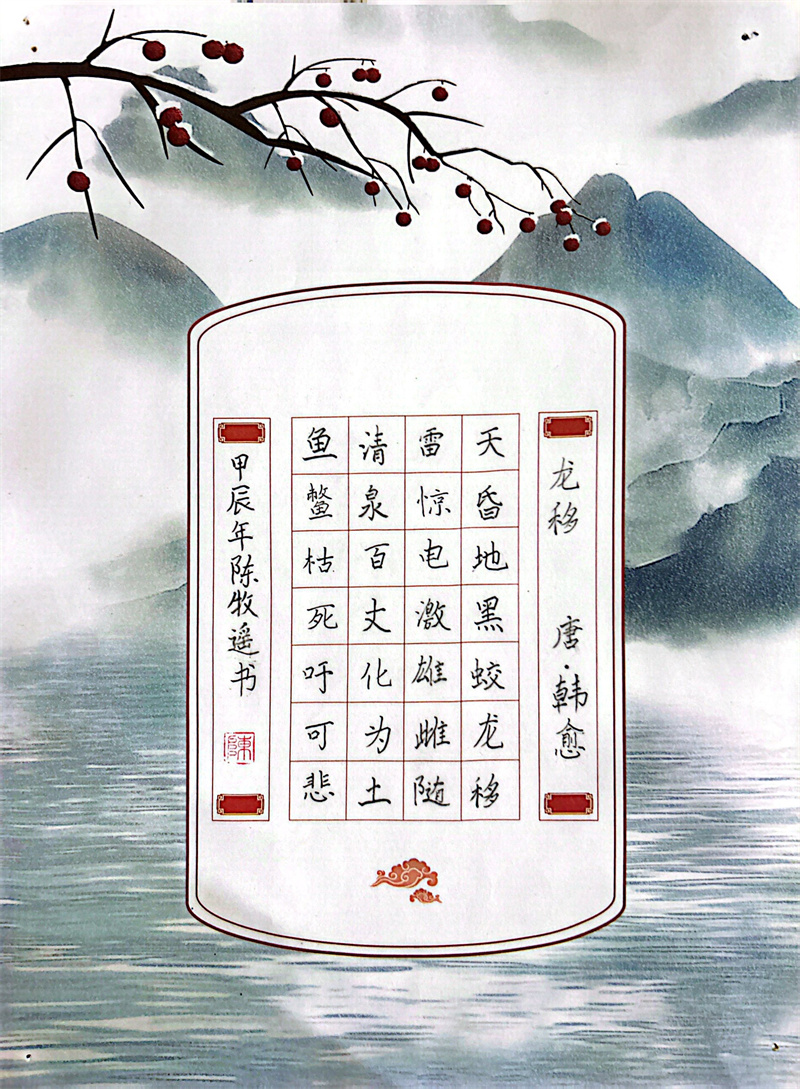 龙移 唐·韩愈
天昏地黑蛟龙移
雷惊电激雄雌随
清泉百丈化为土
鱼鳖枯死吁可悲
甲辰年陈牧遥书
陳